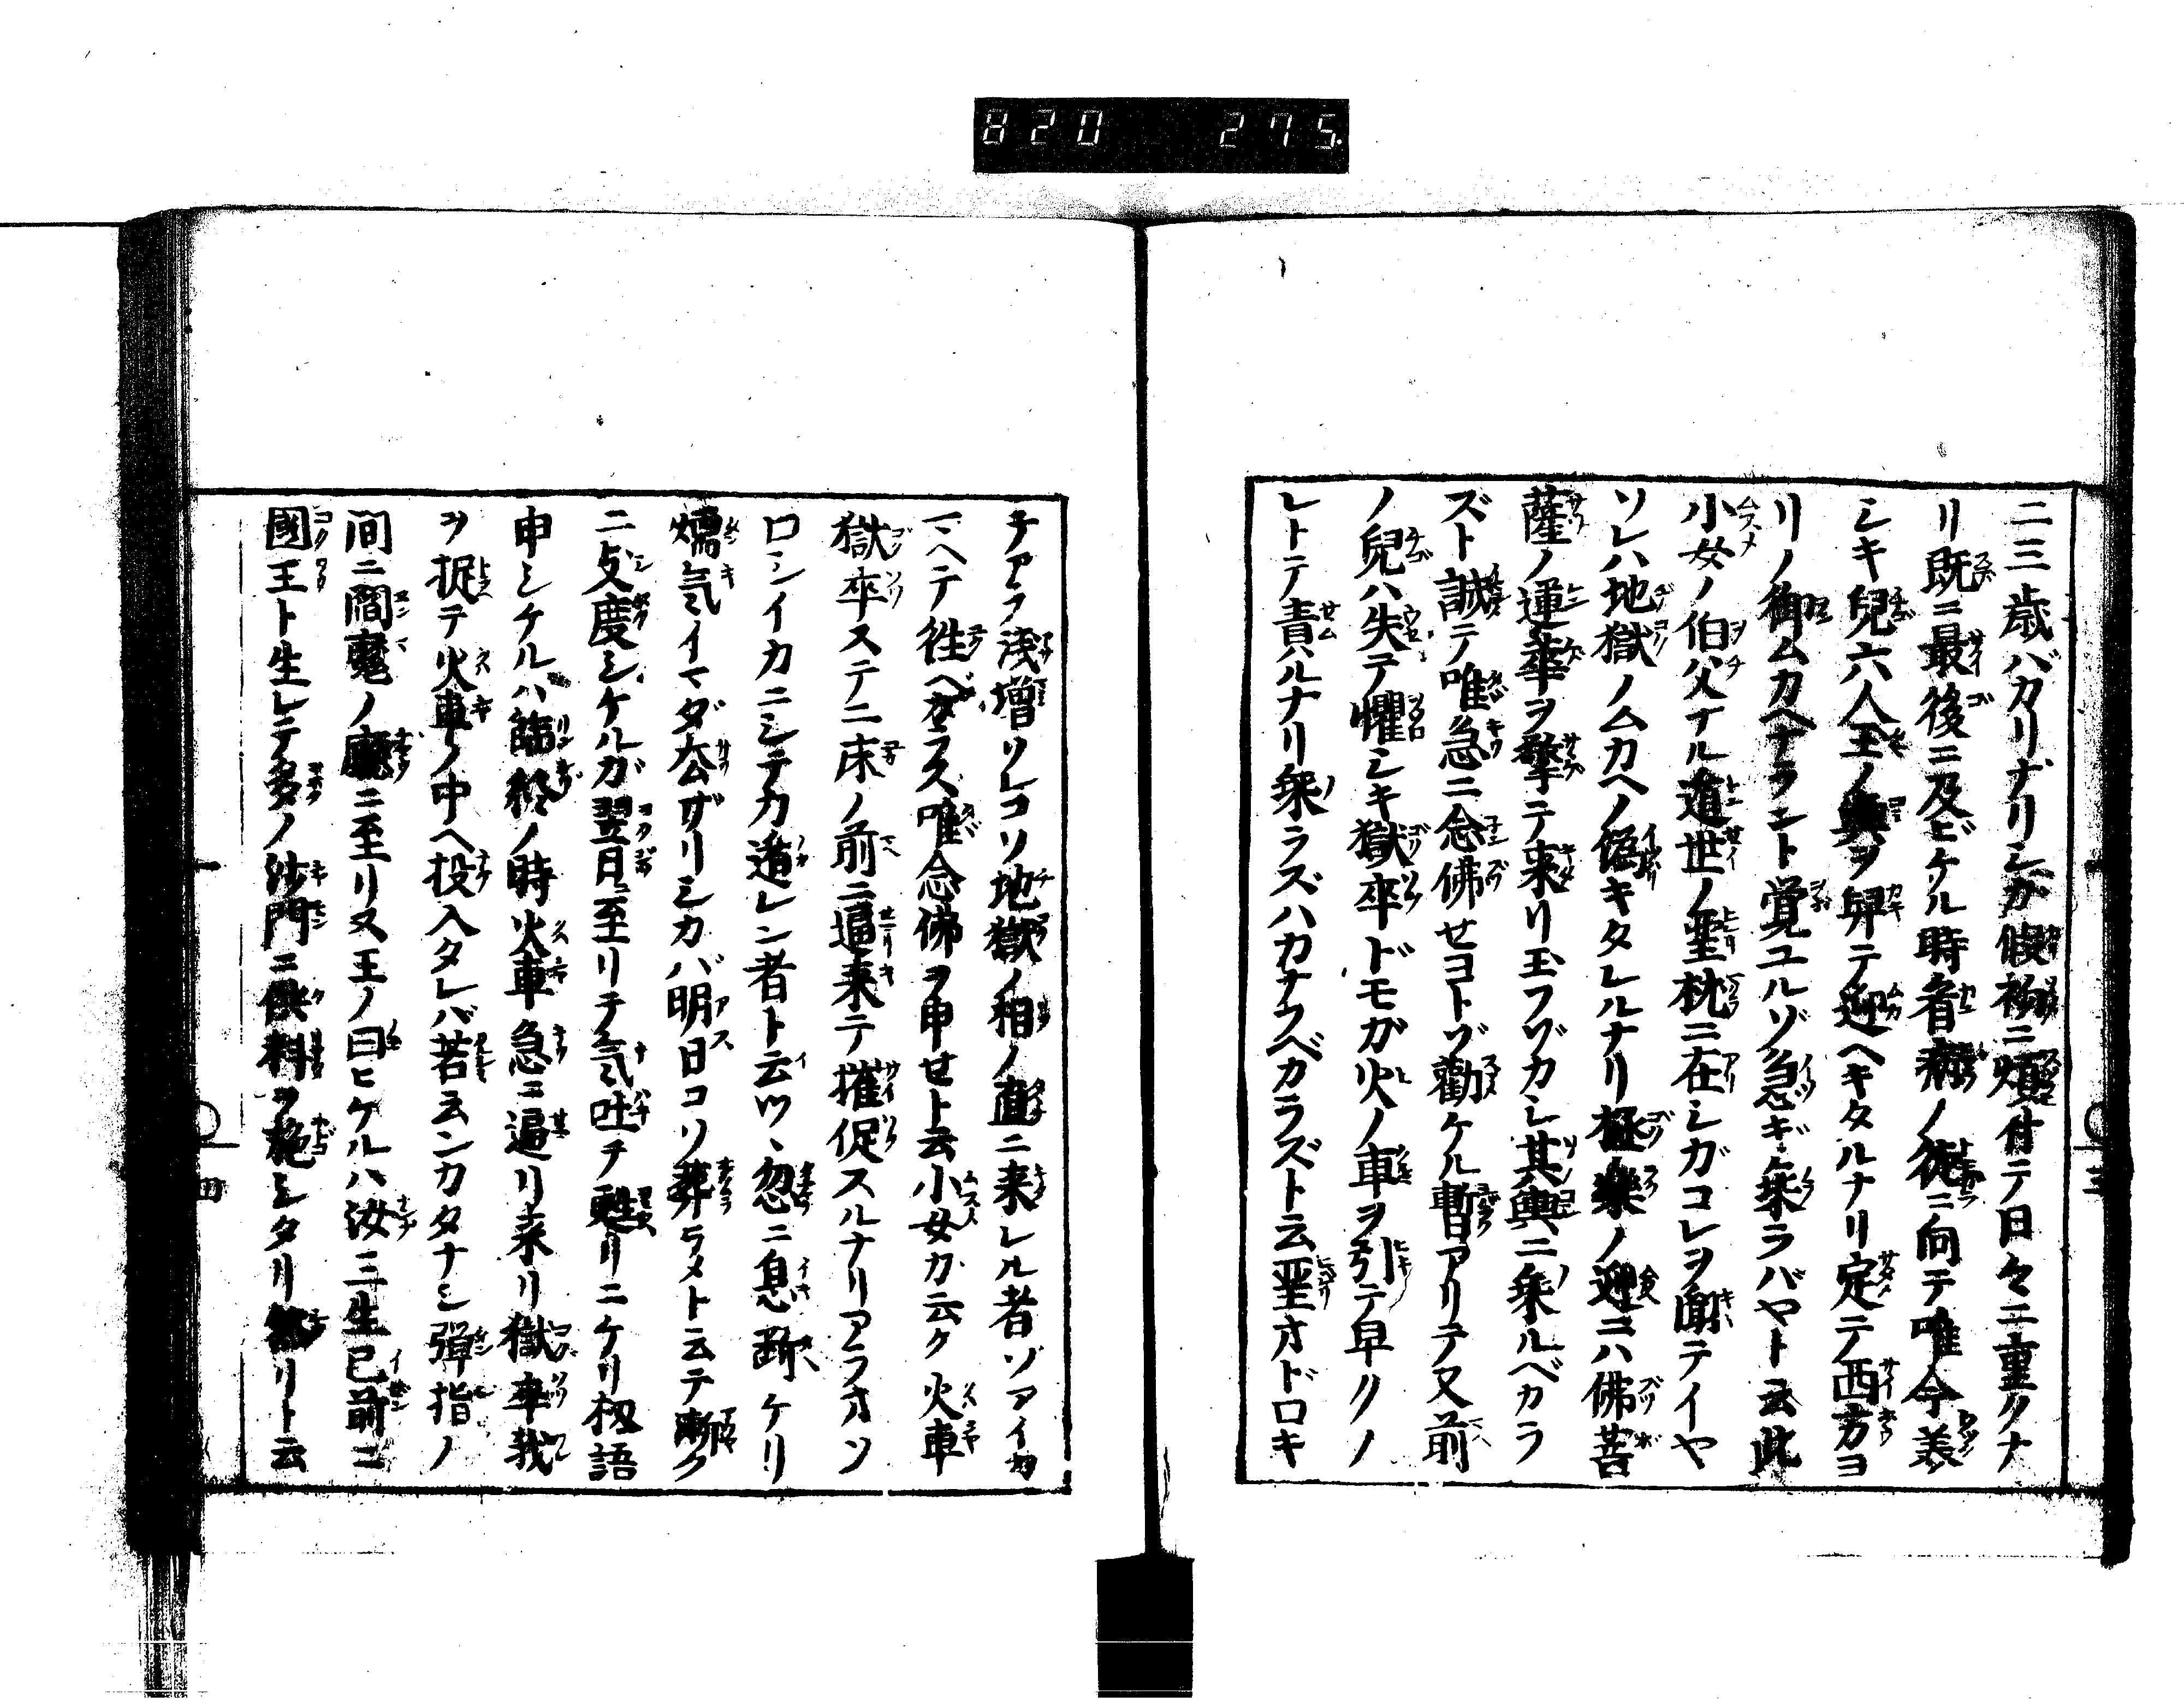 820 275
二三歳バカリナリシガ假初ニ煩付テ日々ニ重クナ
リ既ニ最後ニ及ビケル時看病ノ徒ニ向テ唯今美
シキ兒六人玉ノ輿ヲ舁テ迎ヘキタルナリ定テ西方ヨ
リノ御ムカヘナラント覚ユルゾ急ギ乗ラバヤト云此
小女ノ伯父ナル遁世ノ聖枕ニ在シガコレヲ聞テイヤ
ソレハ地獄ノムカヘノ偽キタレルナリ極樂ノ迎ニハ佛菩
薩ノ蓮臺ヲ擎テ来リ玉フヅカシ其輿ニ乗ルベカラ
ズト誡テ唯急ニ念佛セヨトゾ勸ケル暫アリテ又前
ノ兒ハ失テ懼シキ獄卒ドモガ火ノ車ヲ引テ早クノ
レトテ責ルナリ乗ラズハカナフベカラズト云聖オドロキ
テアラ浅増ソレコソ地獄ノ相ノ直ニ来レル者ゾアイカ
マヘテ往ベカラズ唯念佛ヲ申セト云小女カ云ク火車
獄卒ステニ床ノ前ニ逼来テ摧促スルナリアラオソ
ロシイカニシテカ遁レン者ト云ツヽ忽ニ息断ケリ
煗気イマダ公ザリシカバ明日コソ葬ラメトテ漸ク
ニ支度シケルガ翌日ニ至リテ気吐チ甦リニケリ扨語
申シケルハ臨終ノ時火車急ニ逼リ来リ獄卒我
ヲ捉テ火車ノ中ヘ投入タレバ苦云ンカタナシ彈指ノ
間ニ閻魔ノ廳ニ至リ又王ノ曰ヒケルハ汝三生已前ニ
國王ト生レテ多ノ沙門ニ供料ヲ施シタリ リト云
三
四